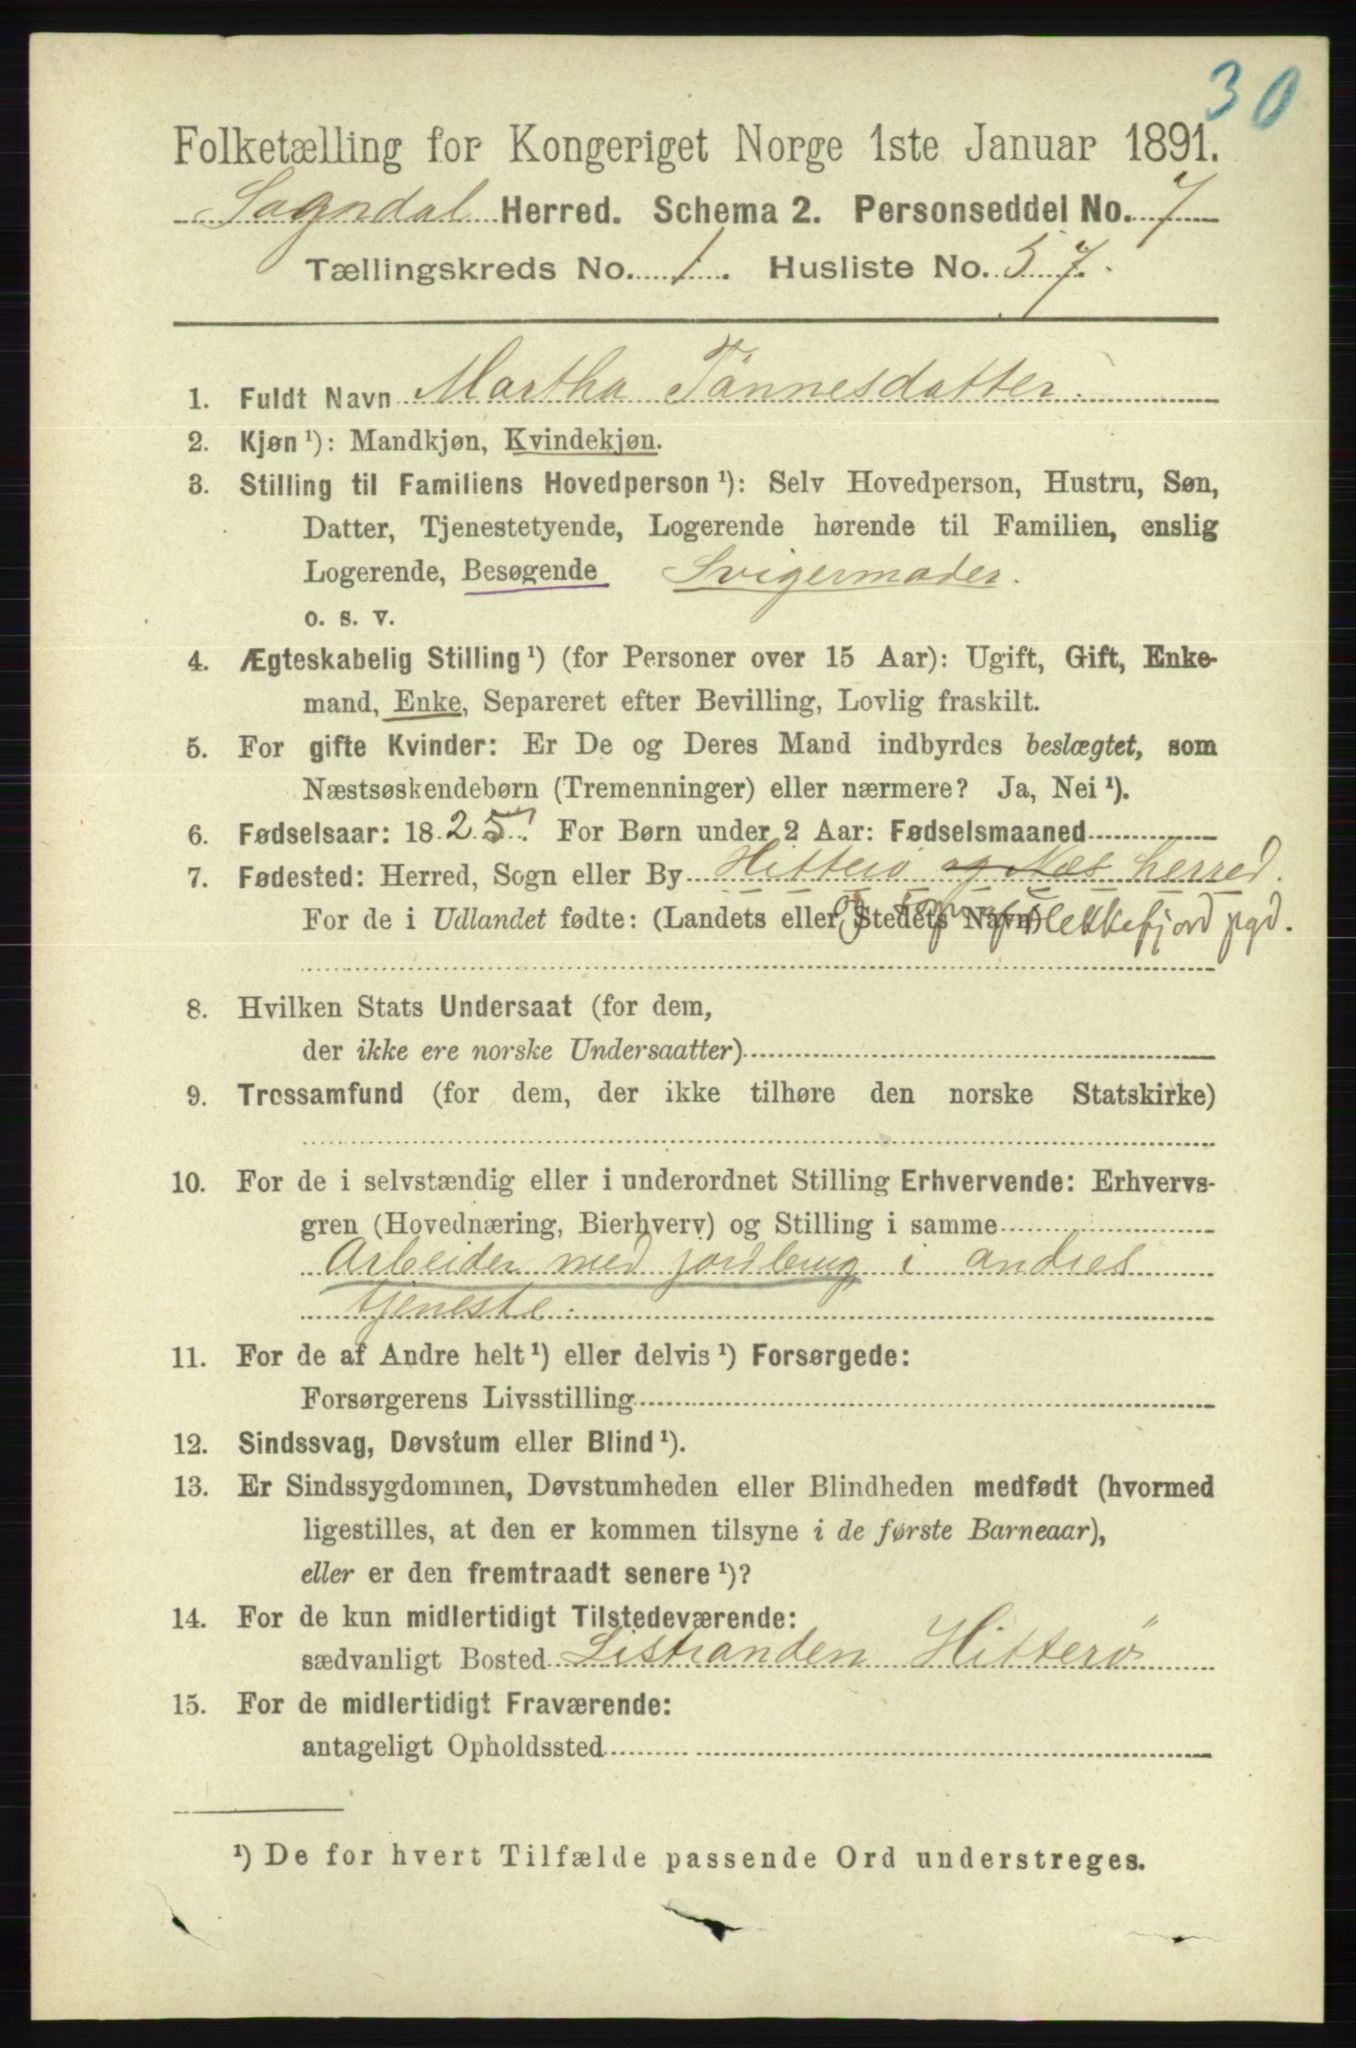 30
Folketælling for Kongeriget Norge 1ste Januar 1891.
Sogndal Herred. Schema 2. Personseddel No. 7
Tællingskreds No. 1. Husliste No. 57.
1. Fuldt Navn Martha Tönnesdatter.
2. Kjøn ¹): Mandkjøn, Kvindekjøn.
3. Stilling til Familiens Hovedperson ¹): Selv Hovedperson, Hustru, Søn,
Datter, Tjenestetyende, Logerende hørende til Familien, enslig
Logerende, Besøgende Svigermoder.
o. s. v.
4. Ægteskabelig Stilling ¹) (for Personer over 15 Aar): Ugift, Gift, Enke-
mand, Enke, Separeret efter Bevilling, Lovlig fraskilt.
5. For gifte Kvinder: Er De og Deres Mand indbyrdes beslægtet, som
Næstsøskendebørn (Tremenninger) eller nærmere? Ja, Nei ¹).
6. Fødselsaar: 1825. For Børn under 2 Aar: Fødselsmaaned
7. Fødested: Herred, Sogn eller By Hitterö og Næs herred.
For de i Udlandet fødte: (Landets eller Stedets Navn) og Flekkefjord pgd.
8. Hvilken Stats Undersaat (for dem,
der ikke ere norske Undersaatter)
9. Trossamfund (for dem, der ikke tilhøre den norske Statskirke)
10. For de i selvstændig eller i underordnet Stilling Erhvervende: Erhvervs-
gren (Hovednæring, Bierhverv) og Stilling i samme
Arbeider med jordbrug i andres
tjeneste.
11. For de af Andre helt ¹) eller delvis ¹) Forsørgede:
Forsørgerens Livsstilling
12. Sindssvag, Døvstum eller Blind ¹).
13. Er Sindssygdommen, Døvstumheden eller Blindheden medfødt (hvormed
ligestilles, at den er kommen tilsyne i de første Barneaar),
eller er den fremtraadt senere ¹)?
14. For de kun midlertidigt Tilstedeværende:
sædvanligt Bosted Listranden Hitterö
15. For de midlertidigt Fraværende:
antageligt Opholdssted
¹) De for hvert Tilfælde passende Ord understreges.